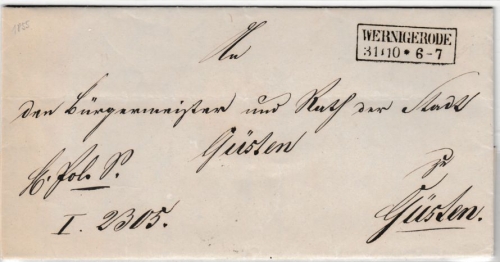 1855
WERNIGERODE
31 10 * 6-7
An
den Bürgermeister und Rath der Stadt
Güsten
H. Pol. S.
zu
I. 2305.
Güsten.